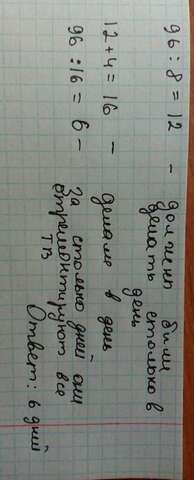 96 : 8 = 12 - должны были
делать столько в
день
12 + 4 = 16 - делале в день
96 : 16 = 6 - За столько дней они
отремонтируют все
ТВ
Ответ: 6 дний